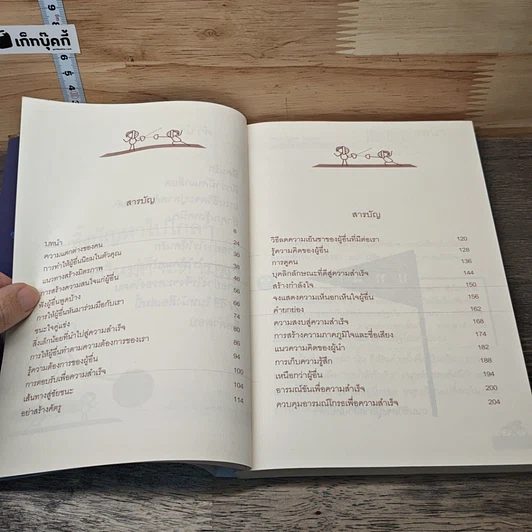 เก็ทบุ๊คกี้
สารบัญ
บทนำ 6
ความแตกต่างของคน 24
การทำให้ผู้อื่นนิยมในตัวคุณ 30
แนวทางสร้างมิตรภาพ 38
การสร้างความสนใจแก่ผู้อื่น
ฟังผู้อื่นพูดบ้าง
การทำให้ผู้อื่นหันมาร่วมมือกับเรา 66
ชนะใจคู่แข่ง 74
สิ่งเล็กน้อยที่นำไปสู่ความสำเร็จ 80
การให้ผู้อื่นทำตามความต้องการของเรา 86
รู้ความต้องการของผู้อื่น 94
การตอบรับเพื่อความสำเร็จ 100
เส้นทางสู่ชัยชนะ 104
อย่าสร้างศัตรู 114
สารบัญ
วิธีลดความเย็นชาของผู้อื่นที่มีต่อเรา 120
รู้ความคิดของผู้อื่น 128
การดูคน 136
บุคลิกลักษณะที่ดีสู่ความสำเร็จ 144
สร้างกำลังใจ 150
จงแสดงความเห็นอกเห็นใจผู้อื่น 156
คำยกย่อง 162
ความสงบสู่ความสำเร็จ 168
การสร้างความภาคภูมิใจและชื่อเสียง 174
แนวความคิดของผู้นำ 182
การเก็บความรู้สึก 188
เหนือกว่าผู้อื่น 194
อารมณ์ขันเพื่อความสำเร็จ 200
ควบคุมอารมณ์โกรธเพื่อความสำเร็จ 204